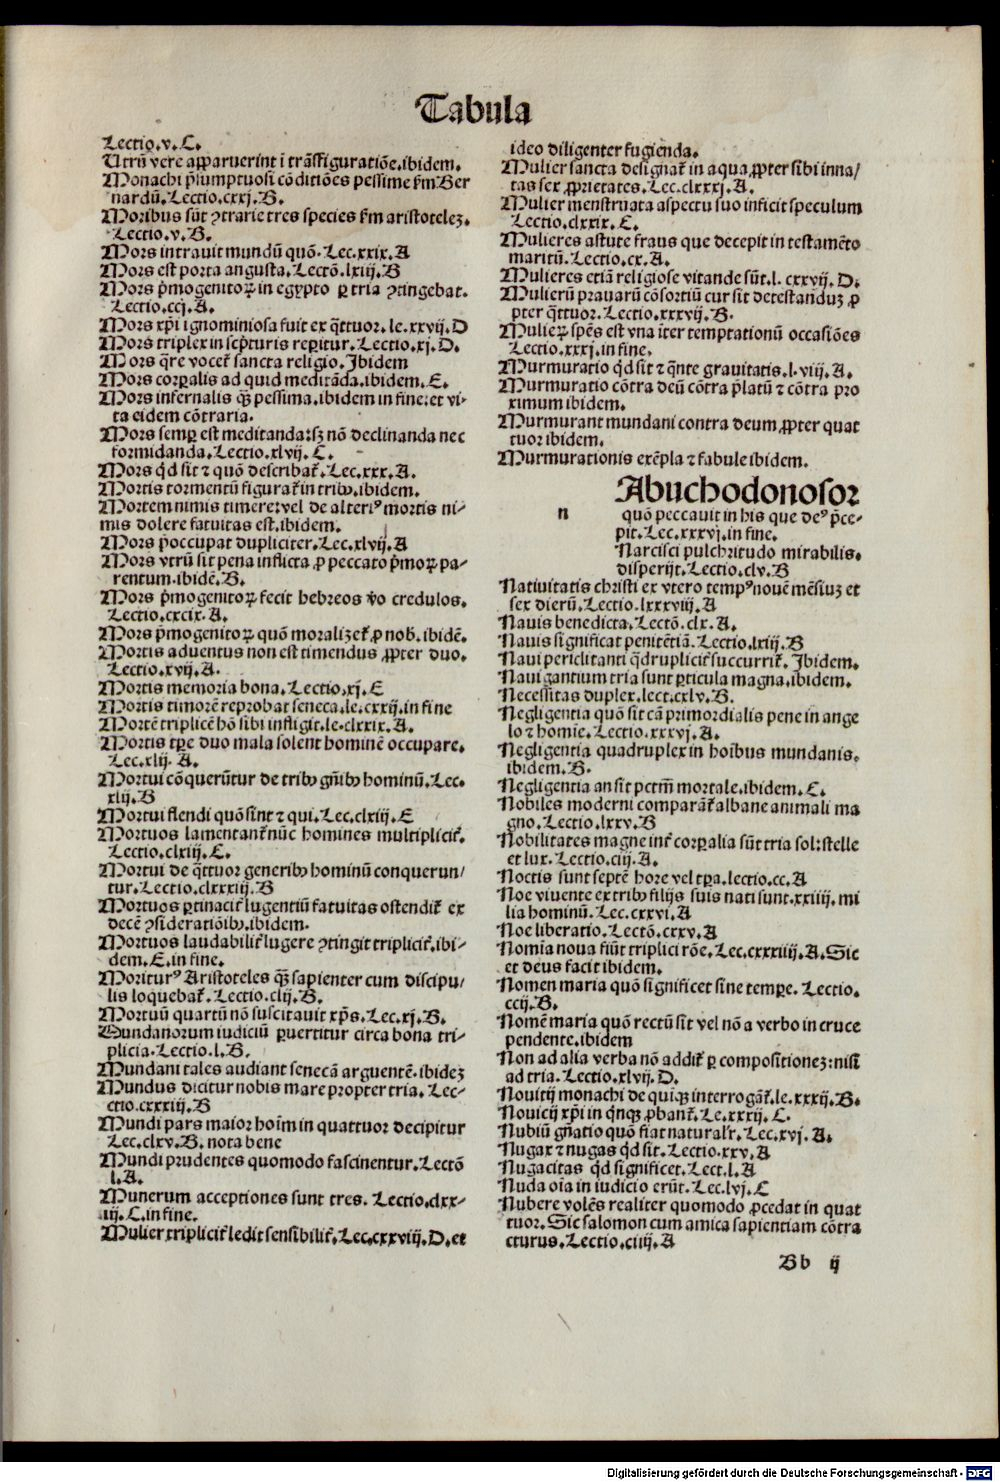 Tabula
Lectio.v.C.
Utrũ vere apparuerint ĩ trãsfiguratiõe.ibidem.
Monachi p̃sumptuosi cõditiões pessime ẜm Ber
nardũ.Lectio.cxxj.B.
Moribus sũt ꝯtrarie tres species ẜm aristotelez.
Lectio.v.B.
Mors intrauit mundũ quõ.Lec.xxix.A
Mors est porta angusta.Lectõ.lxiij.B
Mors p̃mogenitoꝝ in egypto ꝑ tria ꝯtingebat.
Lectio.ccj.A.
Mors xp̃i ignominiosa fuit ex q̃ttuor.le.xxvij.D
Mors triplex in scp̃turis reperitur.Lectio.xj.D.
Mors q̃re vocet̃ sancta religio.Ibidem
Mors corꝑalis ad quid meditãda.ibidem.E.
Mors infernalis qꝫ pessima.ibidem in fine:et vi⸗
ta eidem cõtraria.
Mors semꝑ est meditanda:sꝫ nõ declinanda nec
formidanda.Lectio.xlvij.C.
Mors q̃d sit ⁊ quõ describat̃.Lec.xxx.A.
Mortis tormentũ figurat̃ in tribꝰ.ibidem.
Mortem nimis timere:vel de alteriꝰ mortis ni⸗
mis dolere fatuitas est.ibidem.
Mors p̃occupat dupliciter.Lec.xlvij.A
Mors vtrũ sit pena inflicta ꝓ peccato p̃moꝝ pa⸗
rentum.ibidẽ.B.
Mors p̃mogenitoꝝ fecit hebreos ṽo credulos.
Lectio.cxcix.A.
Mors p̃mogenitoꝝ quõ moralizet̃ ꝓ nob̃.ibidẽ.
Mortis aduentus non est timendus ꝓpter duo.
Lectio.xvij.A.
Mortis memoria bona.Lectio.xj.E
Mortis timorẽ reprobat seneca.le.cxxij.in fine
Mortẽ triplicẽ hõ sibi infligit.le.clxxix.A.
Mortis tꝑe duo mala solent hominẽ occupare.
Lec.xlij.A.
Mortui cõquerũtur de tribꝰ gñibꝰ hominũ.Lec.
xlij.B
Mortui flendi quõ sint ⁊ qui.Lec.clxiij.E
Mortuos lamentant̃ nũc homines multiplicit̃.
Lectio.clxiij.C.
Mortui de q̃ttuor generibꝰ hominũ conquerun⸗
tur.Lectio.clxxxiij.B
Mortuos ꝑtinacit̃ lugentiũ fatuitas ostendit̃ ex
decẽ ꝯsideratiõibꝰ.ibidem.
Mortuos laudabilit̃ lugere ꝯtingit triplicit̃.ibi⸗
dem.E.in fine.
Morituꝰ Aristoteles qꝫ sapienter cum discipu⸗
lis loquebat̃.Lectio.clij.B.
Mortuũ quartũ nõ suscitauit xp̃s.Lec.xj.B.
Mundanorum iudiciũ ꝑuertitur circa bona tri⸗
plicia.Lectio.l.B.
Mundani tales audiant senecã arguentẽ.ibidez
Mundus dicitur nobis mare propter tria.Lec⸗
ctio.cxxxiij.B
Mundi pars maior hoĩm in quattuor decipitur
Lec.clxv.B.nota bene
Mundi prudentes quomodo fascinentur.Lectõ
l.A.
Munerum acceptiones sunt tres.Lectio.clxx⸗
iij.C.in fine.
Mulier tripliciṫ ledit sensibilit̃.Lec.cxxviij.D.et
ideo diligenter fugienda.
Mulier sancta designat̃ in aqua ꝓpter sibi inna⸗
tas sex ꝓprietates.Lec.clxxxj.A.
Mulier menstruata aspectu suo inficit speculum
Lectio.clxxix.C.
Mulieres astute fraus que decepit in testamẽto
maritũ.Lectio.cx.A.
Mulieres etiã religiose vitande sũt.l.cxxvij.D.
Mulierũ prauarũ cõsortiũ cur sit detestanduz ꝓ
pter q̃ttuor.Lectio.xxxvij.B.
Mulieꝝ sp̃es est vna iter temptationũ occasiões
Lectio.xxxj.in fine.
Murmuratio q̃d sit ⁊ q̃nte grauitatis.l.viij.A.
Murmuratio cõtra deũ cõtra p̃latũ ⁊ cõtra pro
ximum ibidem.
Murmurant mundani contra deum ꝓpter quat
tuor ibidem.
Murmurationis exẽpla ⁊ fabule ibidem.
n
Abuchodonosor
quõ peccauit in his que deꝰ p̃ce⸗
pit.Lec.xxxvj.in fine.
Narcisci pulchritudo mirabilis.
disperijt.Lectio.clv.B
Natiuitatis christi ex vtero tempꝰ nouẽ mẽsiuz et
sex dierũ.Lectio.lxxxviij.A
Nauis benedicta.Lectõ.clx.A.
Nauis significat penitẽtiã.Lectio.lxiij.B
Naui periclitanti q̃druplicit̃ succurrit̃.Ibidem.
Nauigantium tria sunt ꝑticula magna.ibidem.
Necessitas duplex.lect.cxlv.B.
Negligentia quõ sit cã primordialis pene in ange
lo ⁊ homĩe.Lectio.xxxvj.A.
Negligentia quadruplex in hoĩbus mundanis.
ibidem.B.
Negligentia an sit pctm̃ mortale.ibidem.C.
Nobiles moderni comparãt̃ albane animali ma
gno.Lectio.lxxv.B
Nobilitates magne int̃ corꝑalia sũt tria sol:stelle
et lux.Lectio.ciij.A.
Noctis sunt septẽ hore vel tꝑa.lectio.cc.A
Noe viuente ex tribꝰ filijs suis nati sunt.xxiiij.mi
lia hominũ.Lec.cxxvi.A
Noe liberatio.Lectõ.cxxv.A
Nomĩa noua fiũt triplici rõe.Lec.cxxxiiij.A.Sic
et deus facit ibidem.
Nomen maria quõ significet sine tempꝑe.Lectio.
ccij.B.
Nomẽ maria quõ rectũ sit vel nõ a verbo in cruce
pendente.ibidem
Non ad alia verba nõ addit̃ ꝑ compositionez:nisi
ad tria.Lectio.xlvij.D.
Nouitij monachi de quiꝰ interrogãt̃.le.xxxij.B.
Nouicij xp̃i in q̃nqꝫ ꝓbant̃.Le.xxxij.C.
Nubiũ gñatio quõ fiat naturalr̃.Lec.xvj.A.
Nugax ⁊ nugas q̃d sit.Lectio.xxv.A
Nugacitas q̃d significet.Lect.l.A
Nuda oĩa in iudicio erũt.Lec.lvj.C
Nubere volẽs realiter quomodo ꝓcedat in quat
tuor.Sic salomon cum amica sapientiam cõtra
cturus.Lectio.ciiij.A
Bb ij
Digitalisierung gefördert durch die Deutsche Forschungsgemeinschaft - DFG